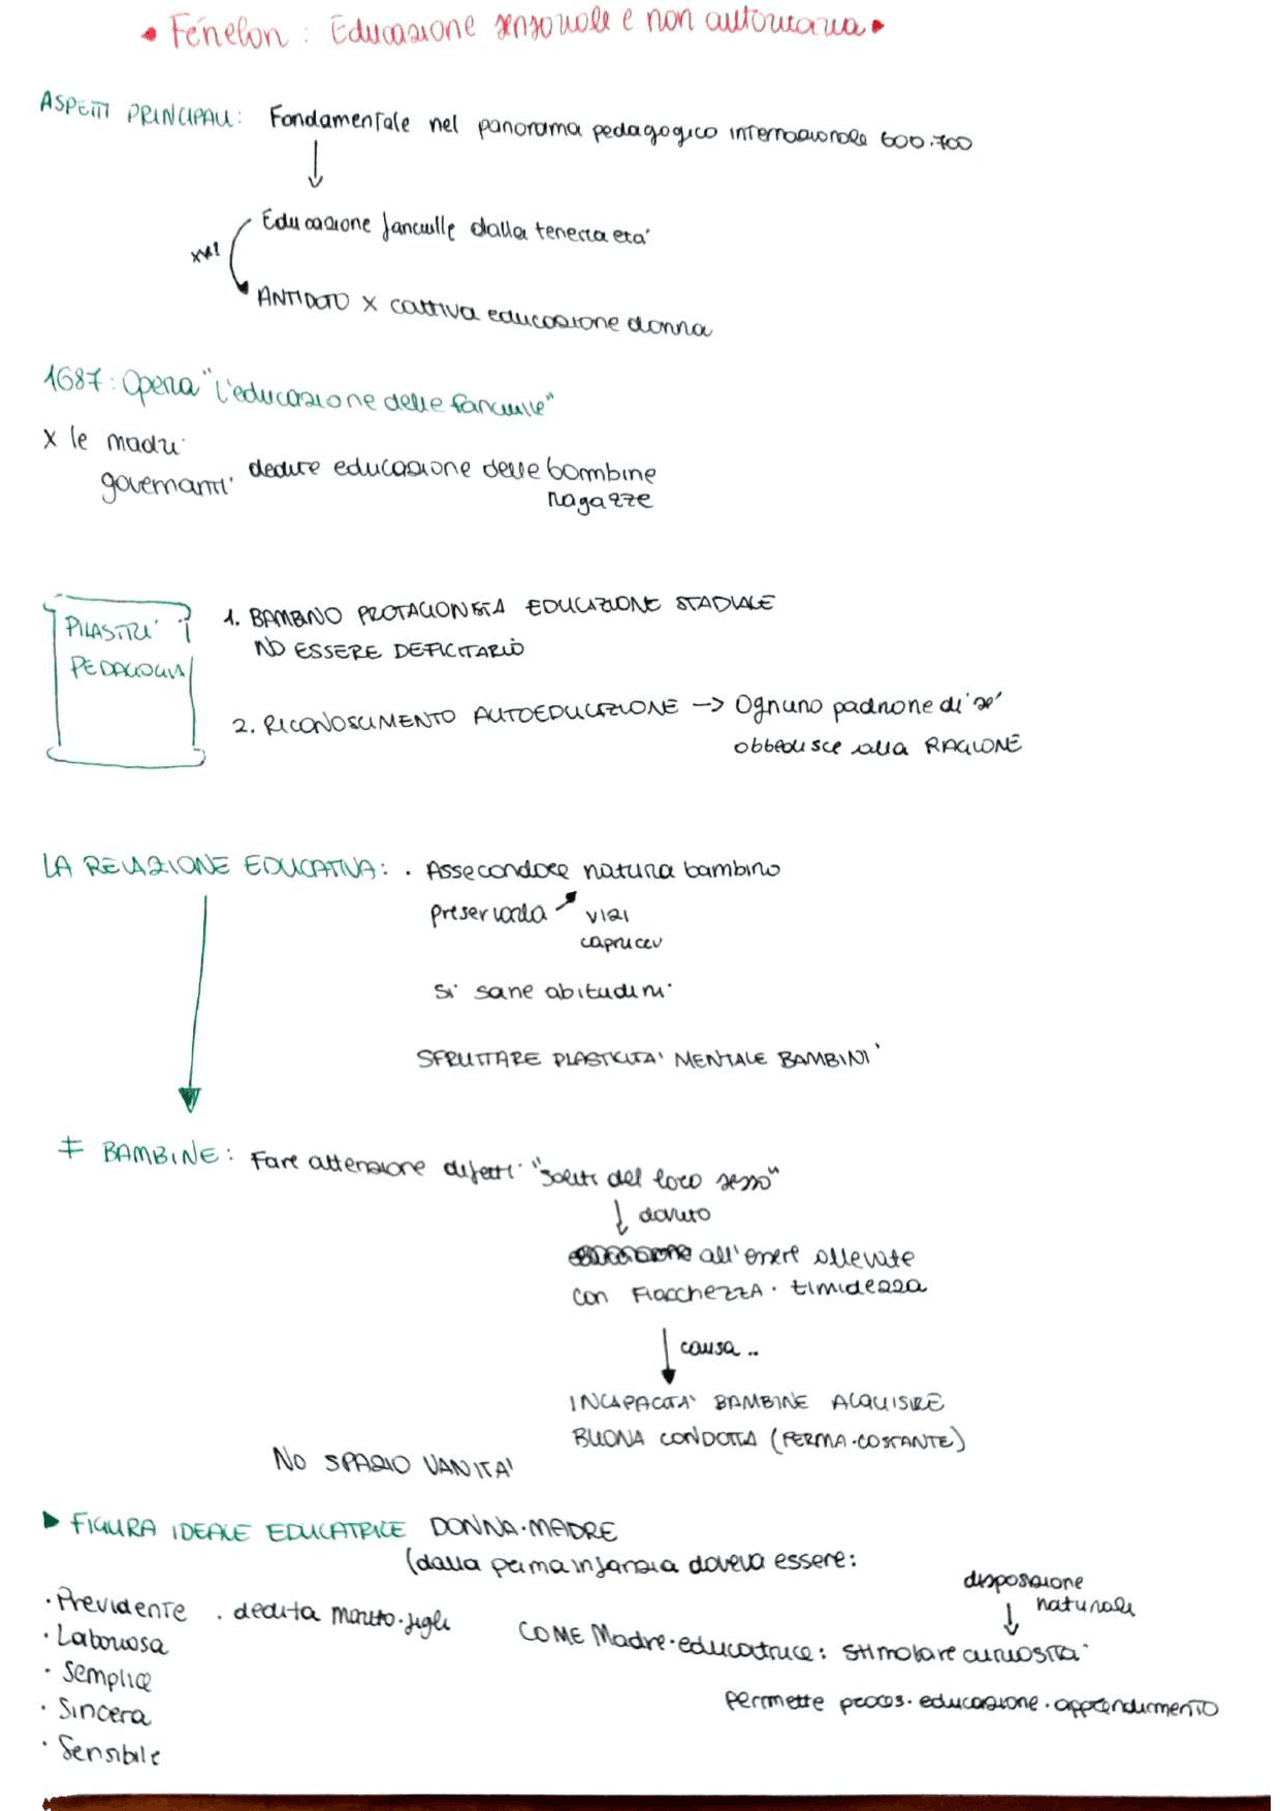 • Fénelon : Educazione sensoriale e non autoritaria •
ASPETTI PRINCIPALI: Fondamentale nel panorama pedagogico internazionale 600.700
Educazione fanciulle dalla tenera età
ANTIDOTO X cattiva educazione donna
1687: Opera "L'educazione delle fanciulle"
X le madri
governanti dedite educazione delle bambine
ragazze
PILASTRI
PEDAGOGIA
1. BAMBINO PROTAGONISTA EDUCAZIONE STADIALE
NO ESSERE DEFICITARIO
2. RICONOSCIMENTO AUTOEDUCAZIONE -> Ognuno padrone di sé
obbedisce alla RAGIONE
LA RELAZIONE EDUCATIVA: . Assecondare natura bambino
preservarla vizi
capricci
Si sane abitudini
SFRUTTARE PLASTICITA' MENTALE BAMBINI
≠ BAMBINE: Fare attenzione difetti "soliti del loro sesso"
dovuto
all'essere allevate
con FIACCHEZZA . timidezza
causa ..
INCAPACITA' BAMBINE ACQUISIRE
BUONA CONDOTTA (FERMA.COSTANTE)
NO SPAZIO VANITA'
FIGURA IDEALE EDUCATRICE DONNA.MADRE
(dalla prima infanzia doveva essere:
· Previdente . dedita marito.figli
· Laboriosa
· Semplice
· Sincera
· Sensibile
disposizione
naturale
COME Madre.educatrice: stimolare curiosità
Permette proces. educazione.apprendimento